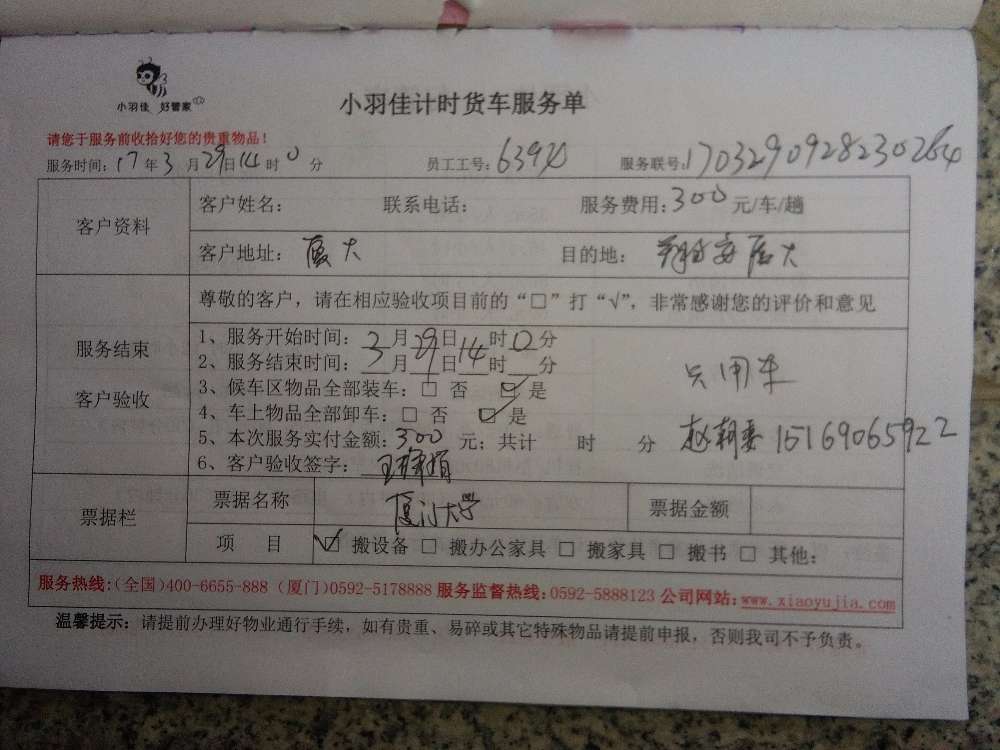 小羽佳 好管家
小羽佳计时货车服务单
请您于服务前收拾好您的贵重物品！
服务时间：17年3月29日14时0分 员工工号：6397 服务联号：17032909282302
客户资料
客户姓名： 联系电话： 服务费用：300元/车/趟
客户地址：厦大 目的地：翔安厦大
服务结束
客户验收
尊敬的客户，请在相应验收项目前的“□”打“√”，非常感谢您的评价和意见
1、服务开始时间：3月29日14时0分
2、服务结束时间：3月29日14时__分
只用车
3、候车区物品全部装车：□ 否 ☑是
4、车上物品全部卸车：□ 否 ☑是
5、本次服务实付金额：300元；共计 时 分 15169065922
6、客户验收签字：
票据栏
票据名称 厦门大学 票据金额
项 目 ☑ 搬设备 □ 搬办公家具 □ 搬家具 □ 搬书 □ 其他：
服务热线：(全国)400-6655-888 (厦门)0592-5178888 服务监督热线：0592-5888123 公司网站：www.xiaoyujia.com
温馨提示：请提前办理好物业通行手续，如有贵重、易碎或其它特殊物品请提前申报，否则我司不予负责。